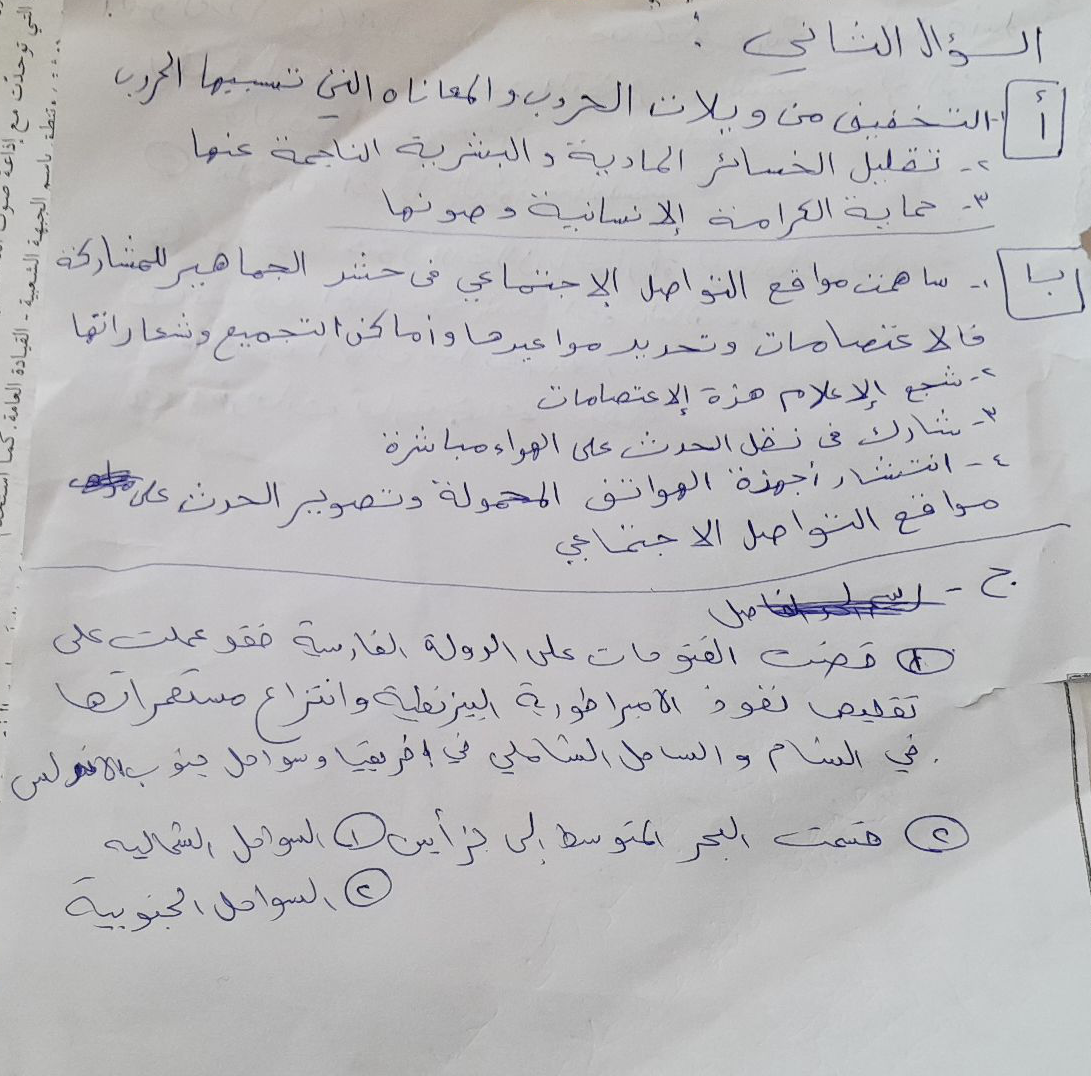 السؤال الثاني :
أ
١- التخفيف من ويلات الحروب والمعاناه التي تسببها الحروب
٢- تقليل الخسائر المادية والبشرية الناجمة عنها
٣- حماية الكرامة الإنسانية وصونها
ب
١- ساهمت مواقع التواصل الإجتماعي في حشد الجماهير للمشاركة
فالاعتصامات وتحديد مواعيدها وأماكن التجميع وشعاراتها
٢- شجع الإعلام هذة الإعتصامات
٣- شارك في نقل الحدث على الهواء مباشرة
٤- انتشار أجهزة الهواتف المحمولة وتصوير الحدث على
مواقع التواصل الاجتماعي
ج -
١ قضت الفتوحات على الدولة الفارسية فقد عملت على
تقليص نفوذ الامبراطورية البيزنطية وانتزاع مستعمراتها
في الشام والساحل الشمالي في افريقيا وسواحل جنوب الاندلس.
٢ قسمت البحر المتوسط إلى جزأين ١ السواحل الشماليه
٢ السواحل الجنوبية
التي توحدت مع إذاعة صوت
باسم الجبهة الشعبية - القيادة العامة. كما